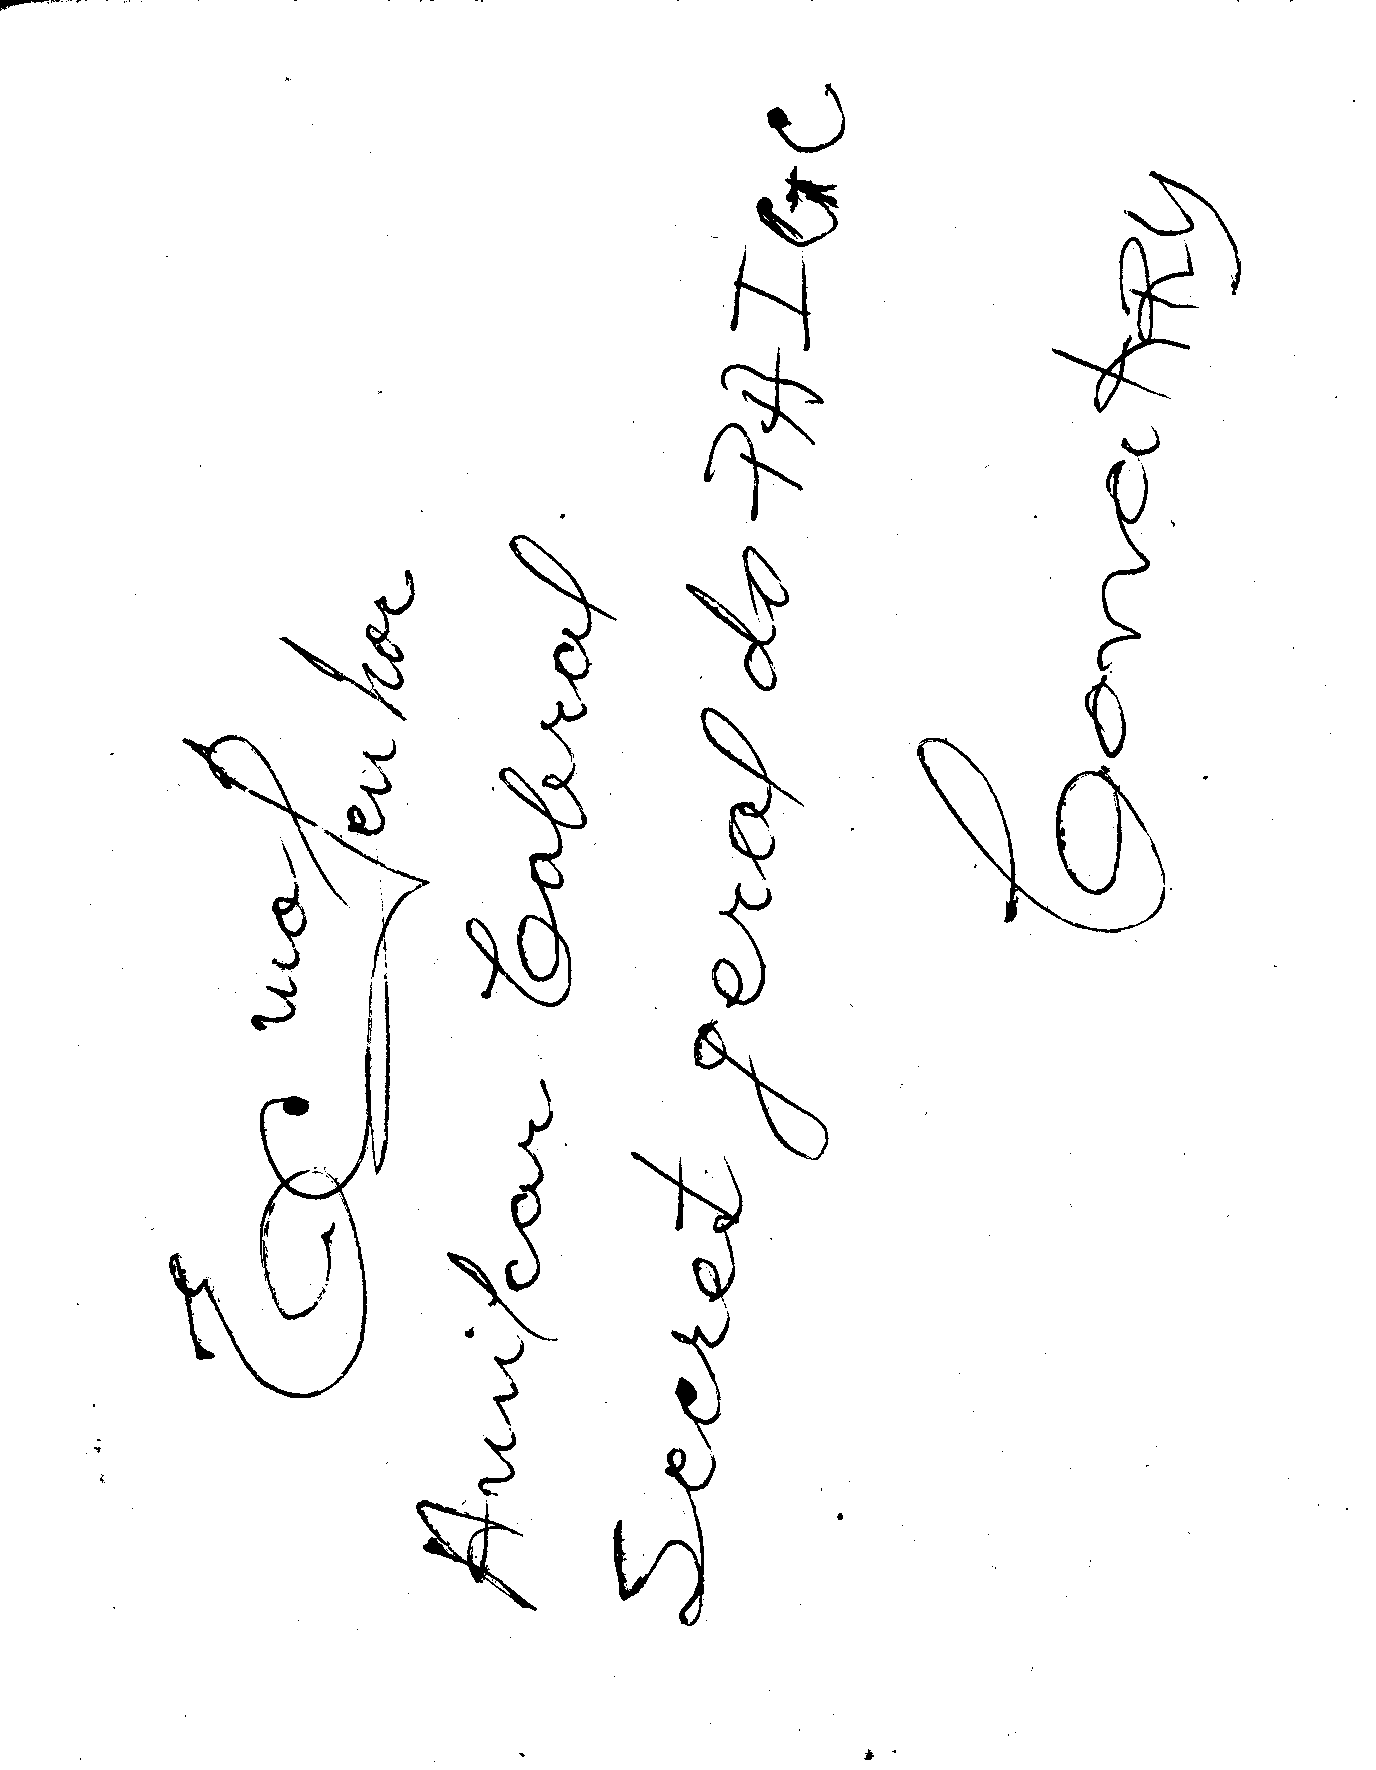 Ex mo Senhor
Amilcar Cabral
Secret geral do PAIGC
Conakry